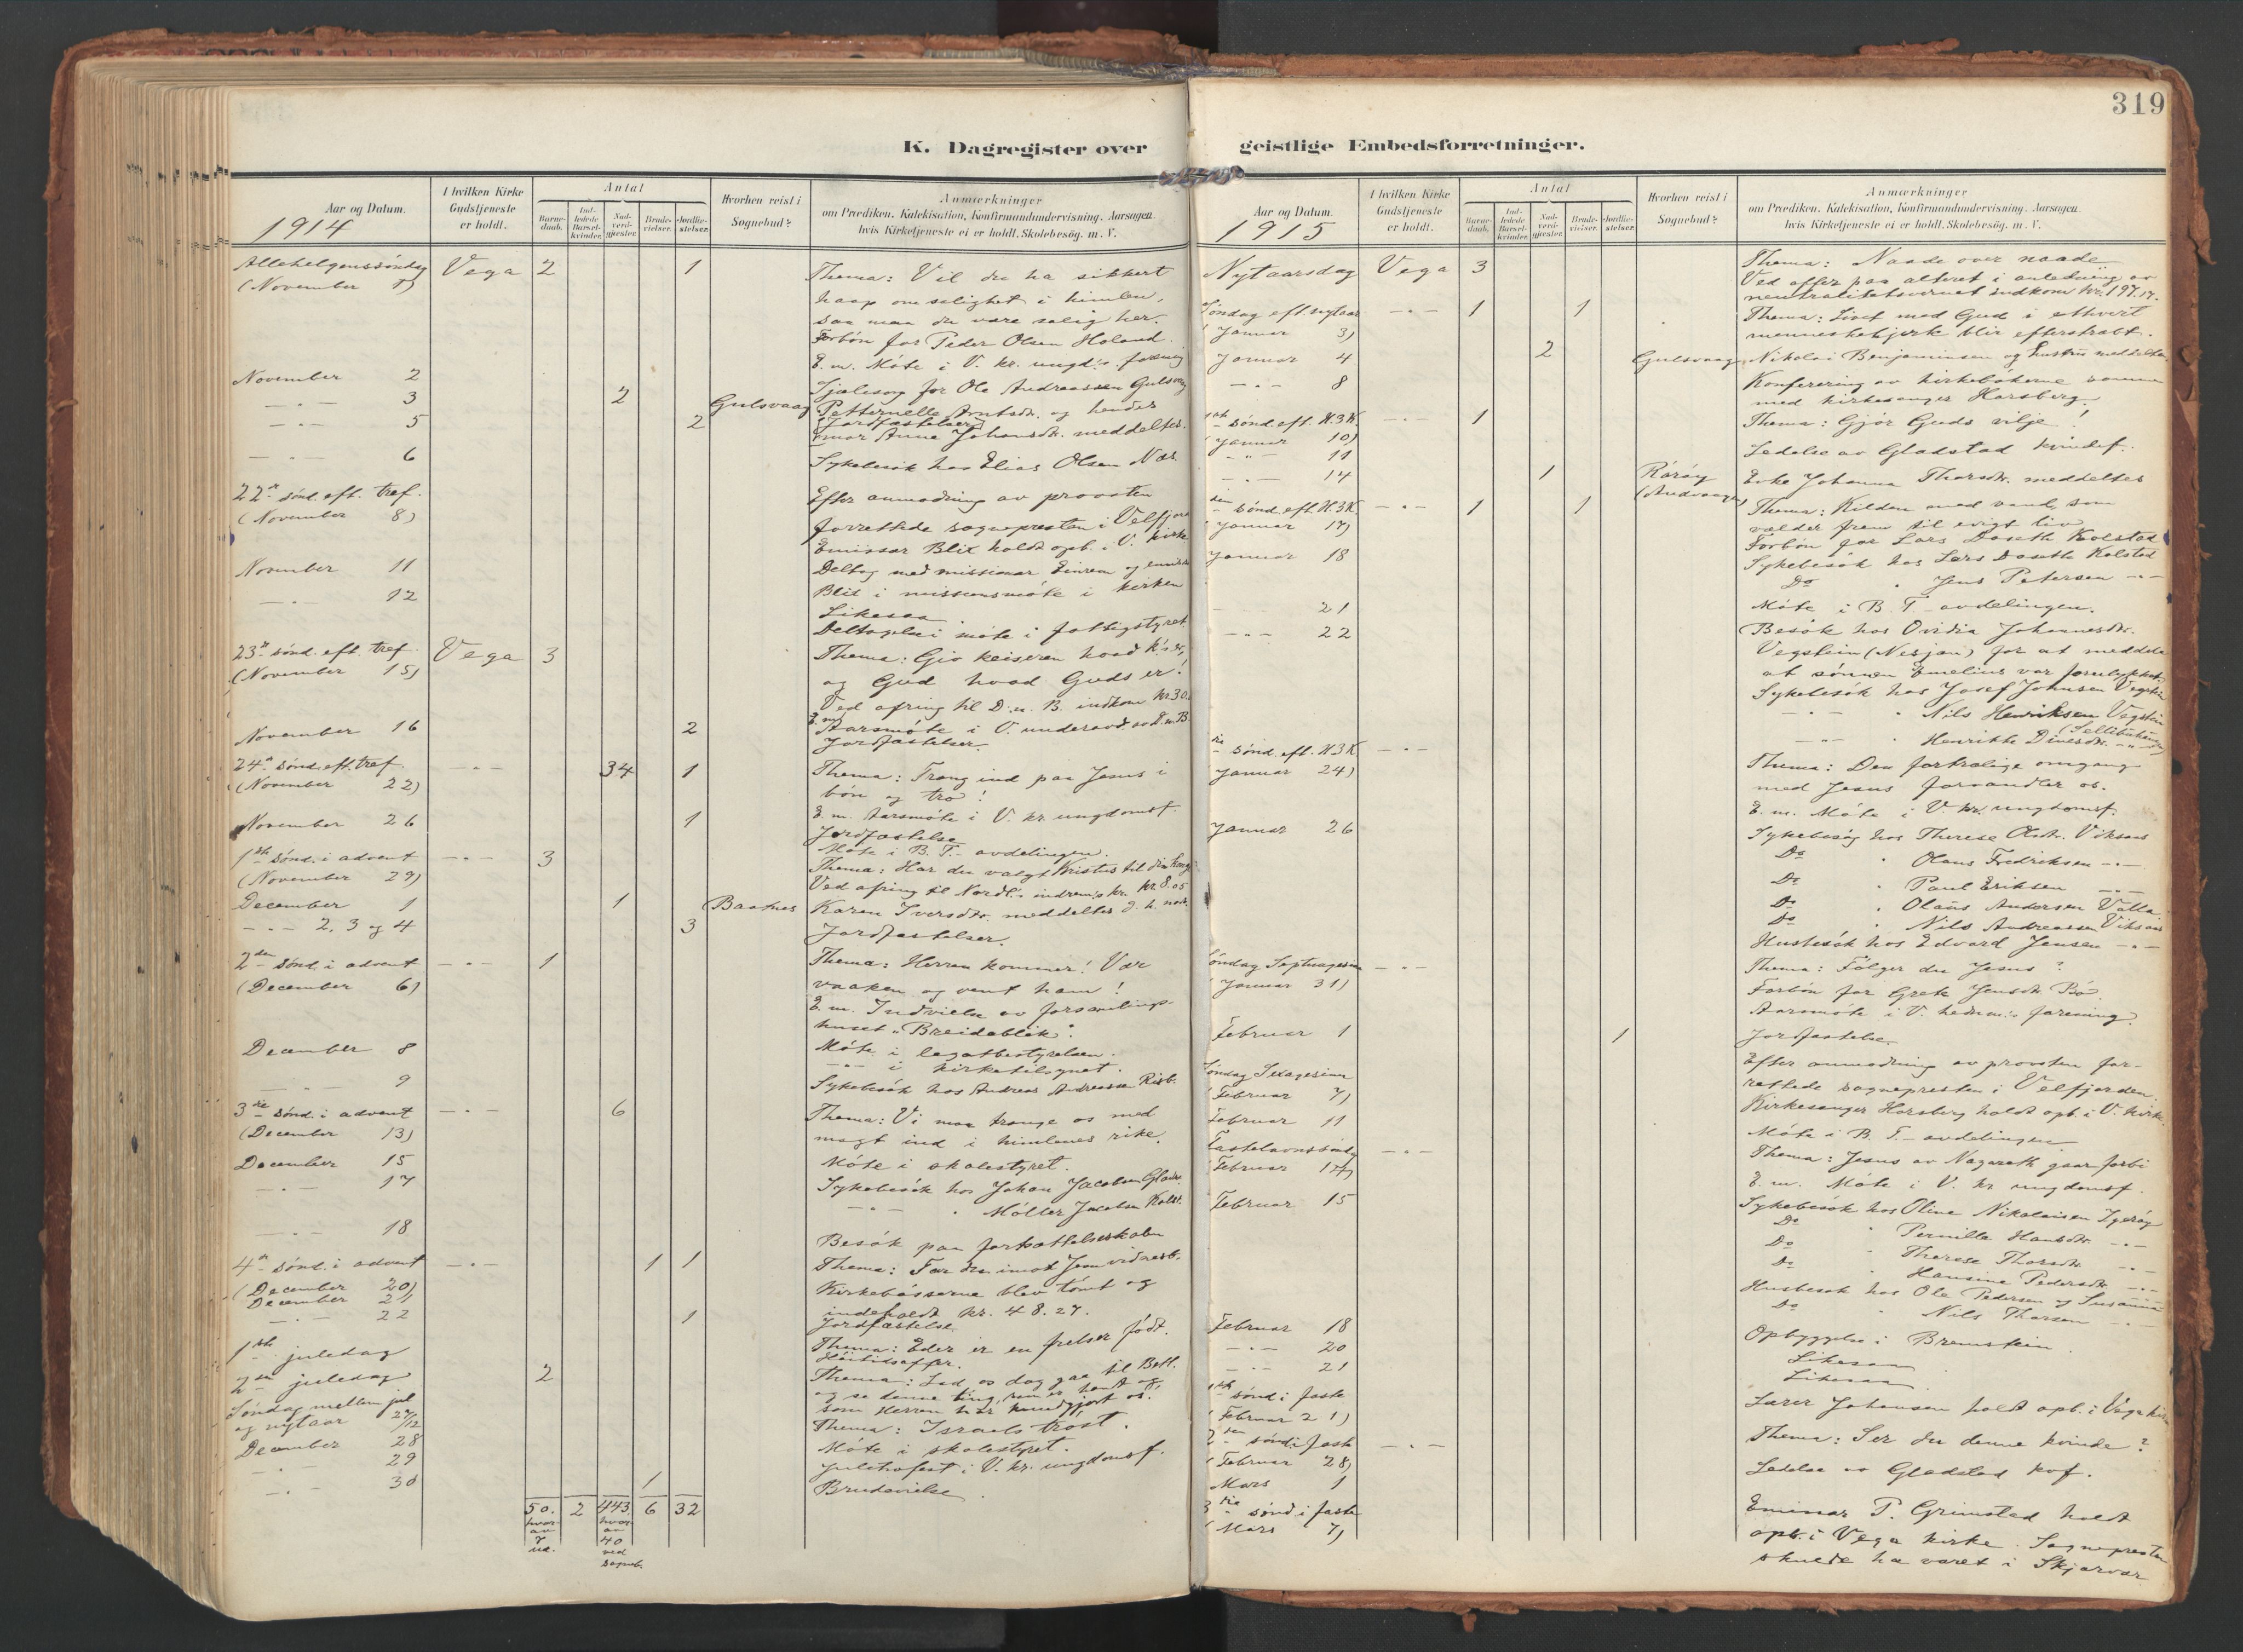 319
K. Dagregister over
geistlige Embedsforretninger.
Aar og Datum.
1914
I hvilken Kirke
Gudstjeneste
er holdt.
Antal
Barne-
daab.
Ind-
ledede
Barsel-
kvinder.
Nad-
verd-
gjester.
Brude-
vielser.
Jordfæ-
stelser.
Hvorhen reist i
Sognebud?
Anmærkninger
om Prædiken, Katekisation, Konfirmandundervisning, Aarsagen
hvis Kirketjeneste ei er holdt, Skolebesøg. m. V.
Allehelgenssøndag Vega 2 1 Thema: Vil du ha sikkert
(November 1) haap om salighet i himlen,
saa maa du være salig her.
Forbön for Peder Olsen Holand.
E. m. Möte i V. kr. ungd.s forening
November 2 Sjælesorg for Ole Andreassen Gulsvaag
-"- 3 2 Gulsvaag Petternelle Arntsdr. og hendes
-"- 5 2 (Jordfæstelser)
mor Anne Johansdr. meddeltes.
-"- 6 Sykebesök hos Elias Olsen Nes.
22de sönd. eft. tref. Efter anmodning av provsten
(November 8) forrettede sognepresten i Velfjord
Emissær Blix holdt opb. i V. kirke
November 11 Deltog med missionær Einrem og emissær
-"- 12 Blix i missionsmöte i kirken
Likesaa
Deltagelse i möte i fattigstyret.
23de sönd. eft. tref. Vega 3 Thema: Giv keiseren hvad k.s er,
(November 15) og Gud hvad Guds er!
Ved ofring til D. n. B. indkom kr 30.
E. m. Aarsmöte i V. underavd. av D. n. B.
November 16 2 Jordfæstelser
24de sönd. eft. tref. -"- 34 1 Thema: Træng ind paa Jesus i
(November 22) bön og tro!
E. m. Aarsmöte i V. kr. ungdomsf.
November 26 1 Jordfæstelse
Möte i B. T.- avdelingen.
1ste sönd. i advent -"- 3 Thema: Har du valgt Kristus til din konge?
(November 29) Ved ofring til Nordl.s indrem.s kr. kr. 8.05
December 1 1 Baatnes Karen Iversdtr. meddeltes d. h. nadv.
-"- 2, 3 og 4 3 Jordfæstelser.
2den sönd. i advent -"- 1 Thema: Herren kommer! Vær
(December 6) vaaken og vent ham!
E. m. Indvielse av forsamlings-
huset "Breidablik".
December 8 Möte i legatbestyrelsen.
-"- i kirketilsynet.
-"- 9 Sykebesök hos Andreas Andreassen Risb.
3die sönd. i advent -"- 6 Thema: Vi maa trænge os med
(December 13) magt ind i himlenes rike.
December 15 Möte i skolestyret.
-"- 17 Sykebesök hos Johan Jacobsen Glads.
-"- Möller Jacobsen Kolst.
-"- 18 Besök paa fortsættelsesskolen
4de sönd. i advent -"- 1 1 Thema: Tar du imot Jesu vidnesb.
(December 20)
December 21 Kirkebössene blev tömt og
indeholdt kr. 48.27.
-"- 22 1 Jordfæstelse
1ste juledag Thema: Eder er en frelser födt.
Höitidsoffer.
2den juledag 2 Thema: Lad os dog gaa til Betl.
og se denne ting, som er hændt og
som Herren har kundgjort os!
Söndag mellem jul
og nytaar 27/12 Thema: Israels tröst.
December 28 Möte i skolestyret.
-"- 29 Juletræfest i V. kr. ungdomsf.
-"- 30 1 Brudevielse
50. 2 443 6 32
hvor-
av
7
ud.
hvor-
av
40
ved
sogneb.
Aar og Datum.
1915
I hvilken Kirke
Gudstjeneste
er holdt.
Antal
Barne-
daab.
Ind-
ledede
Barsel-
kvinder.
Nad-
verd-
gjester.
Brude-
vielser.
Jordfæ-
stelser.
Hvorhen reist i
Sognebud?
Anmærkninger
om Prædiken, Katekisation, Konfirmandundervisning, Aarsagen
hvis Kirketjeneste ei er holdt, Skolebesøg. m. V.
Nytaarsdag Vega 3 Thema: Naade over naade
Ved offer paa alteret i anledning av
neutralitetsvernet indkom kr. 197.17.
Söndag eft. nytaar -"- 1 1 Thema: Livet med Gud i ethvert
(Januar 3) menneskehjerte blir efterstræbt.
Januar 4 2 Gulsvaag Nikolai Benjaminsen og hustru meddeltes
-"- 8 Konferering av kirkebökerne sammen
med kirkesanger Horsberg.
1ste sönd. eft. H.3K. -"- 1 Thema: Gjör Guds vilje!
(Januar 10)
-"- 11 Ledelse av Gladstad kvindef.
-"- 14 1 Röröy Enke Johanna Thorsdtr. meddeltes
(Andvaagen)
2den sönd. eft. H.3K. -"- 1 1 Thema: Kilden med vand, som
(Januar 17) vælder frem til evigt liv
Forbön for Lars Doseth Kolstad
Januar 18 Sykebesök hos Lars Doseth Kolstad
Do " Jens Petersen -"-
-"- 21 Möte i B. T.- avdelingen.
-"- 22 Besök hos Ovidia Johannesdtr.
Vegstein (Nesjan) for at meddele
at sönnen Emelius var forulykket.
Sykebesök hos Josef Johnsen Vegstein
-"- " Nils Henriksen Vegstein
-"- " Henrikke Dinesdtr. -"-
3die sönd. eft. H3K -"- Thema: Den fortrolige omgang
(Januar 24) med Jesus forvandler os.
E. m. Möte i V. kr. ungdomsf.
Januar 26 Sykebesög hos Therese Olsdtr. Viksaas
Do " Olaus Fredriksen -"-
Do " Paul Eriksen -"-
Do " Olaus Andersen Valla
Do " Nils Andreassen Viksaas
Husbesök hos Edvard Jensen -"-
Söndag Septuagesima -"- Thema: Fölger du Jesus?
(Januar 31) Forbön for Grete Jensdtr. Bö.
Aarsmöte i V. hednm.s forening.
Februar 1 1 Jordfæstelse
Söndag Sexagesima Efter anmodning av provsten for-
(Februar 7) rettede sognepresten i Velfjorden.
Kirkesanger Horsberg holdt opb. i V. kirke.
Februar 11 Möte i B. T.- avdelingen
Fastelavnssöndag -"- Thema: Jesus av Nazareth gaar forbi
(Februar 14) E. m. Möte i V. kr. ungdomsf.
Februar 15 Sykebesök hos Oline Nikolaisen Igeröy
Do " Pernille Hansdtr. -"-
Do " Therese Thorsdtr. -"-
Do " Hansine Pedersdtr. -"-
Husbesök hos Ole Pedersen og Susanna
Do " Nils Thorsen -"-
Februar 18 Opbyggelse i Bremstein.
-"- 20 Likesaa
-"- 21 Likesaa
1ste sönd. i faste
(Februar 21) Lærer Johansen holdt opb. i Vega kirke
2den sönd. i faste -"- Thema: Ser du denne kvinde?
(Februar 28)
Mars 1 Ledelse av Gladstad kvf.
3die sönd. i faste Emissær P. Grimstad holdt
(Mars 7) opb. i Vega kirke. Sognepresten
skulde ha været i Skjærvær